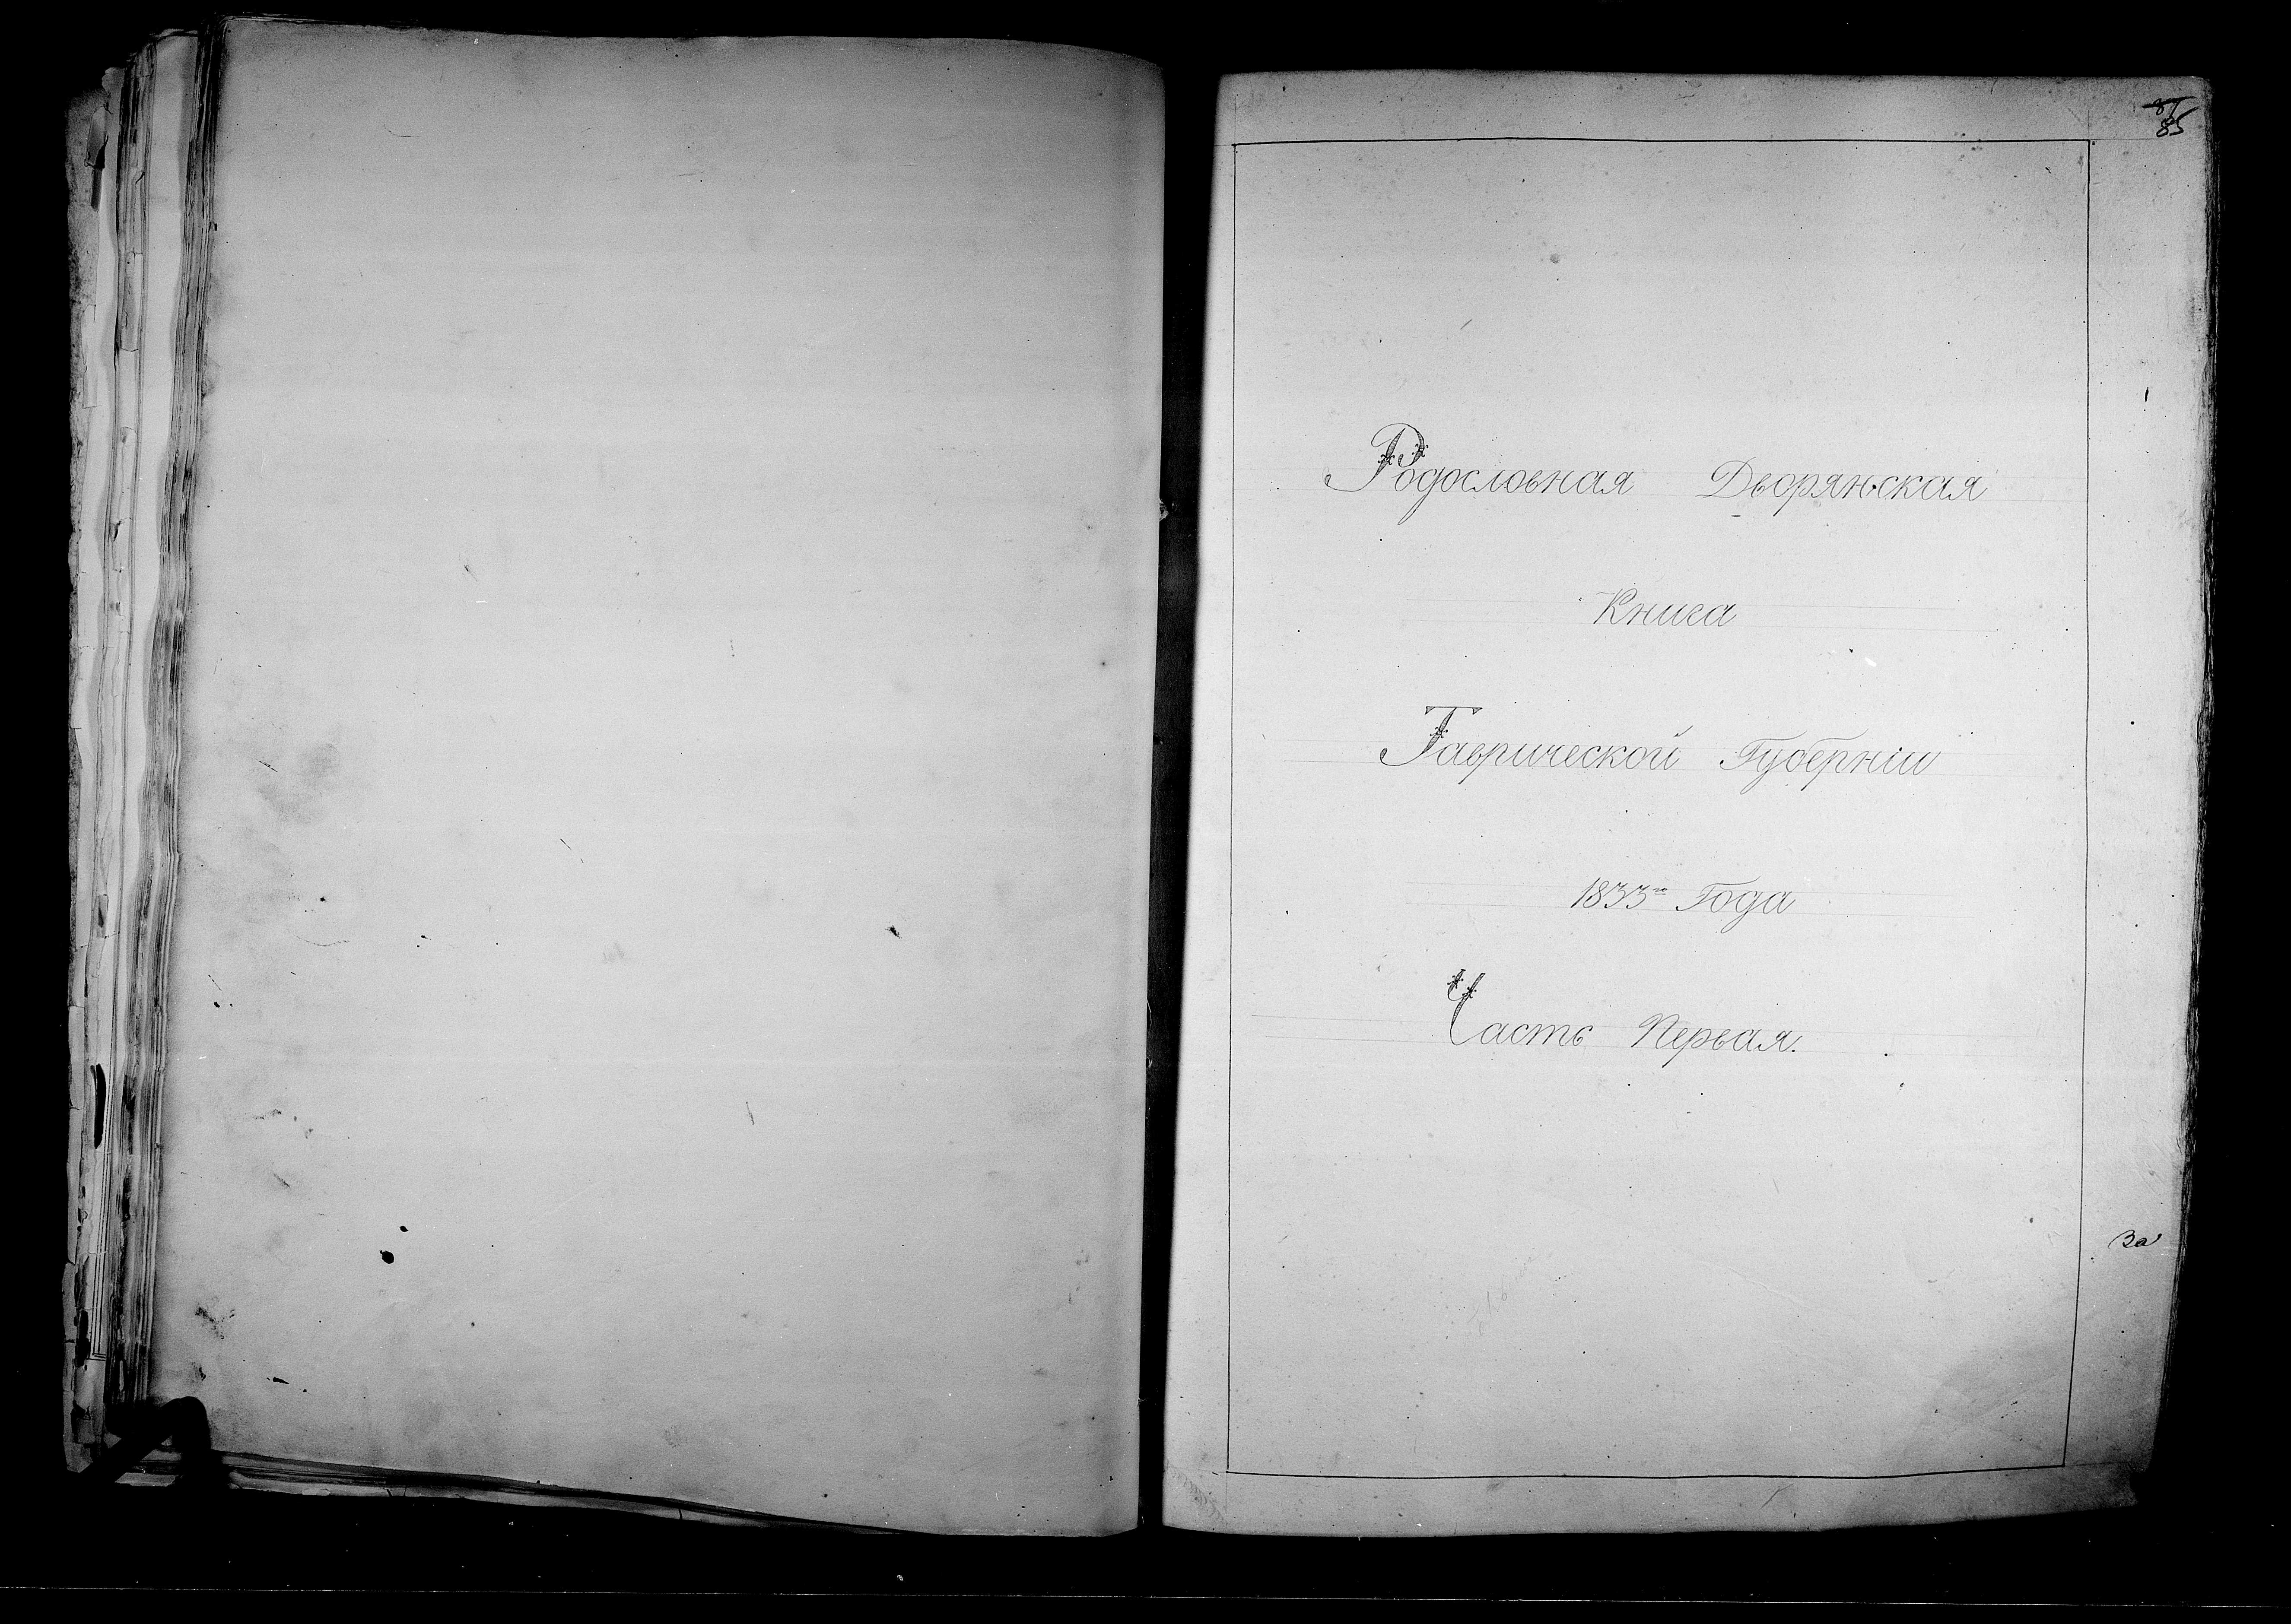 87
85
Родословная Дворянская
Книга
Таврической Губерніи
1833го Года
Часть Первая.
За